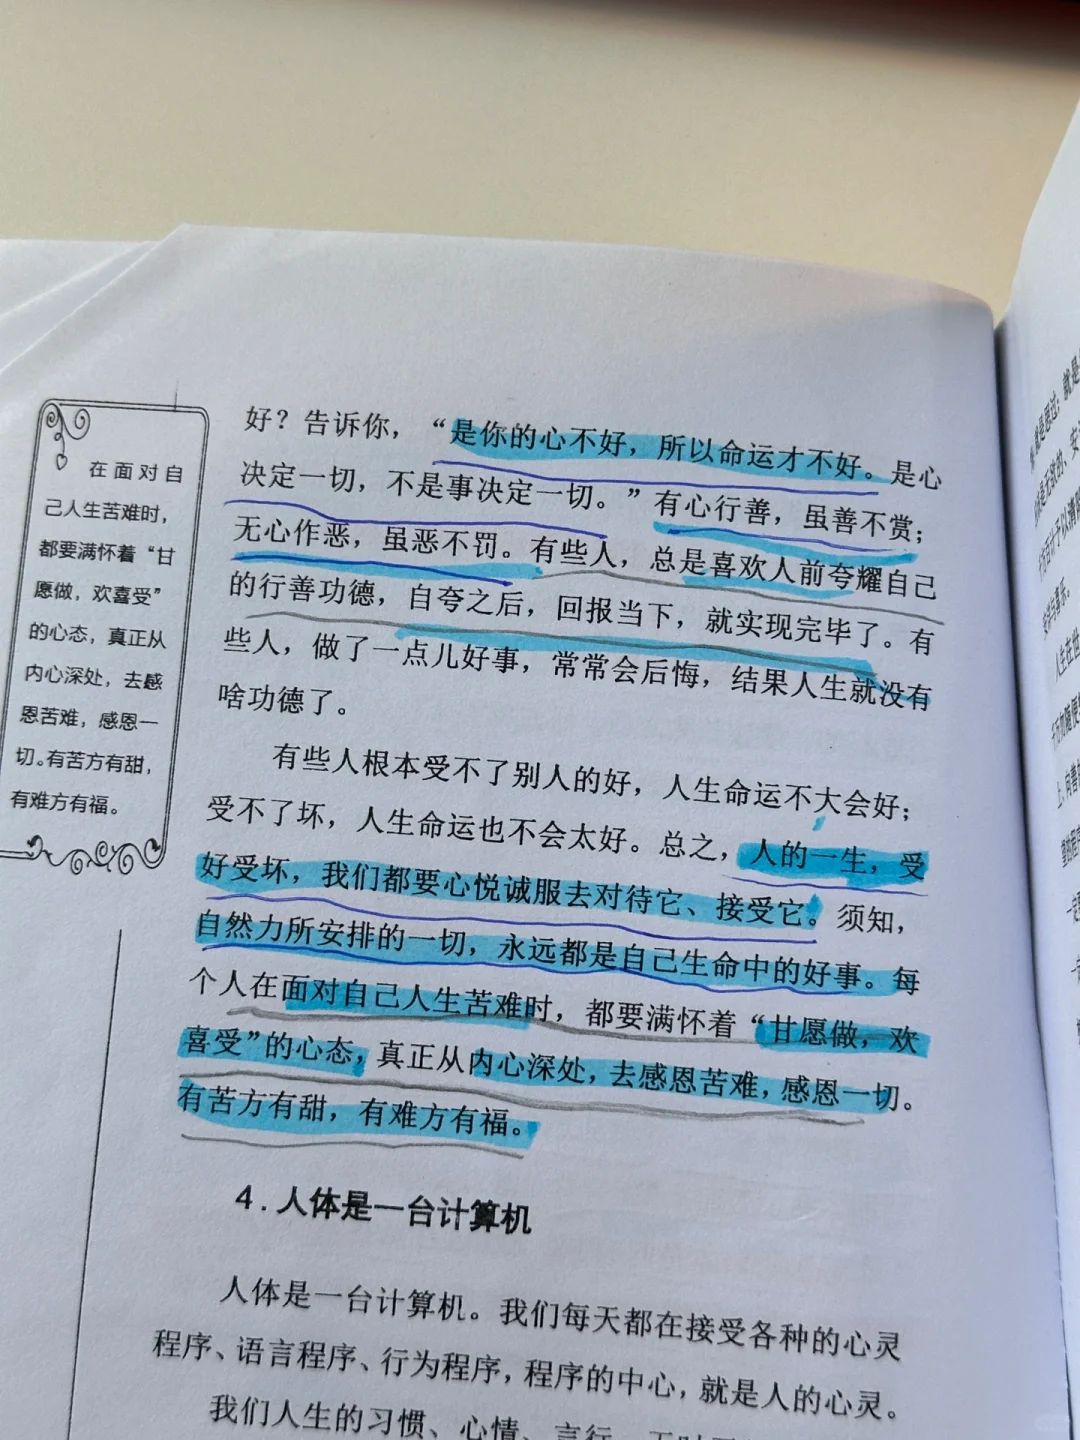 在面对自
己人生苦难时，
都要满怀着“甘
愿做，欢喜受”
的心态，真正从
内心深处，去感
恩苦难，感恩一
切。有苦方有甜，
有难方有福。
好？告诉你，“是你的心不好，所以命运才不好。是心
决定一切，不是事决定一切。”有心行善，虽善不赏；
无心作恶，虽恶不罚。有些人，总是喜欢人前夸耀自己
的行善功德，自夸之后，回报当下，就实现完毕了。有
些人，做了一点儿好事，常常会后悔，结果人生就没有
啥功德了。
有些人根本受不了别人的好，人生命运不大会好；
受不了坏，人生命运也不会太好。总之，人的一生，受
好受坏，我们都要心悦诚服去对待它、接受它。须知，
自然力所安排的一切，永远都是自己生命中的好事。每
个人在面对自己人生苦难时，都要满怀着“甘愿做，欢
喜受”的心态，真正从内心深处，去感恩苦难，感恩一切。
有苦方有甜，有难方有福。
4.人体是一台计算机
人体是一台计算机。我们每天都在接受各种的心灵
程序、语言程序、行为程序，程序的中心，就是人的心灵。
我们人生的习惯、心情、言行，